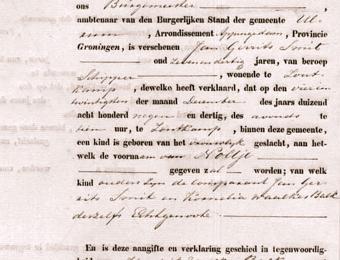 ons Burgemeester
ambtenaar van den Burgerlijken Stand der gemeente Ul-
rum, Arrondissement Appingedam, Provincie
Groningen, is verschenen Jan Gerrits Smit
oud zevenendertig jaren, van beroep
Schipper, wonende te Zout-
kamp, dewelke heeft verklaard, dat op den vieren
twintigsten der maand December des jaars duizend
acht honderd negen en dertig, des avonds te
tien uur, te Zoutkamp, binnen deze gemeente,
een kind is geboren van het vrouwelijk geslacht, aan het-
welk de voornaam van Noltje
gegeven zal worden; van welk
kind ouders zijn de comparant Jan Ger
rits Smit en Kornelia
deszelfs Echtgenoote
En is deze aangifte en verklaring geschied in tegenwoordig-